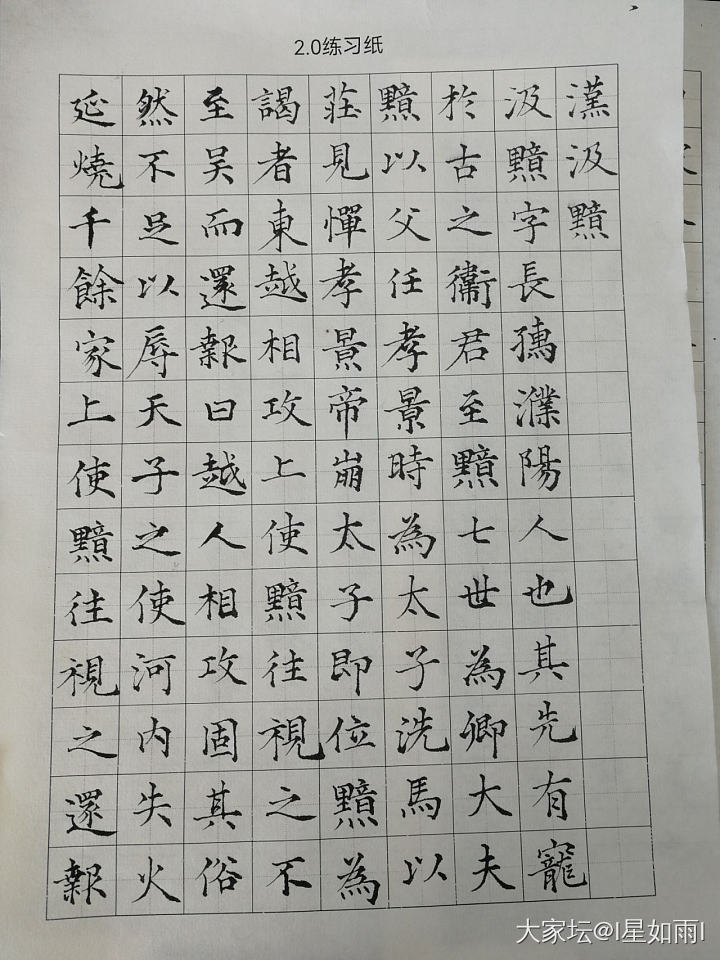 2.0练习纸
漢汲黯
汲黯字長孺濮陽人也其先有寵
於古之衞君至黯七世為卿大夫
黯以父任孝景時為太子洗馬以
莊見憚孝景帝崩太子即位黯為
謁者東越相攻上使黯往視之不
至吴而還報曰越人相攻固其俗
然不足以辱天子之使河内失火
延燒千餘家上使黯往視之還報
大家坛@I星如雨I